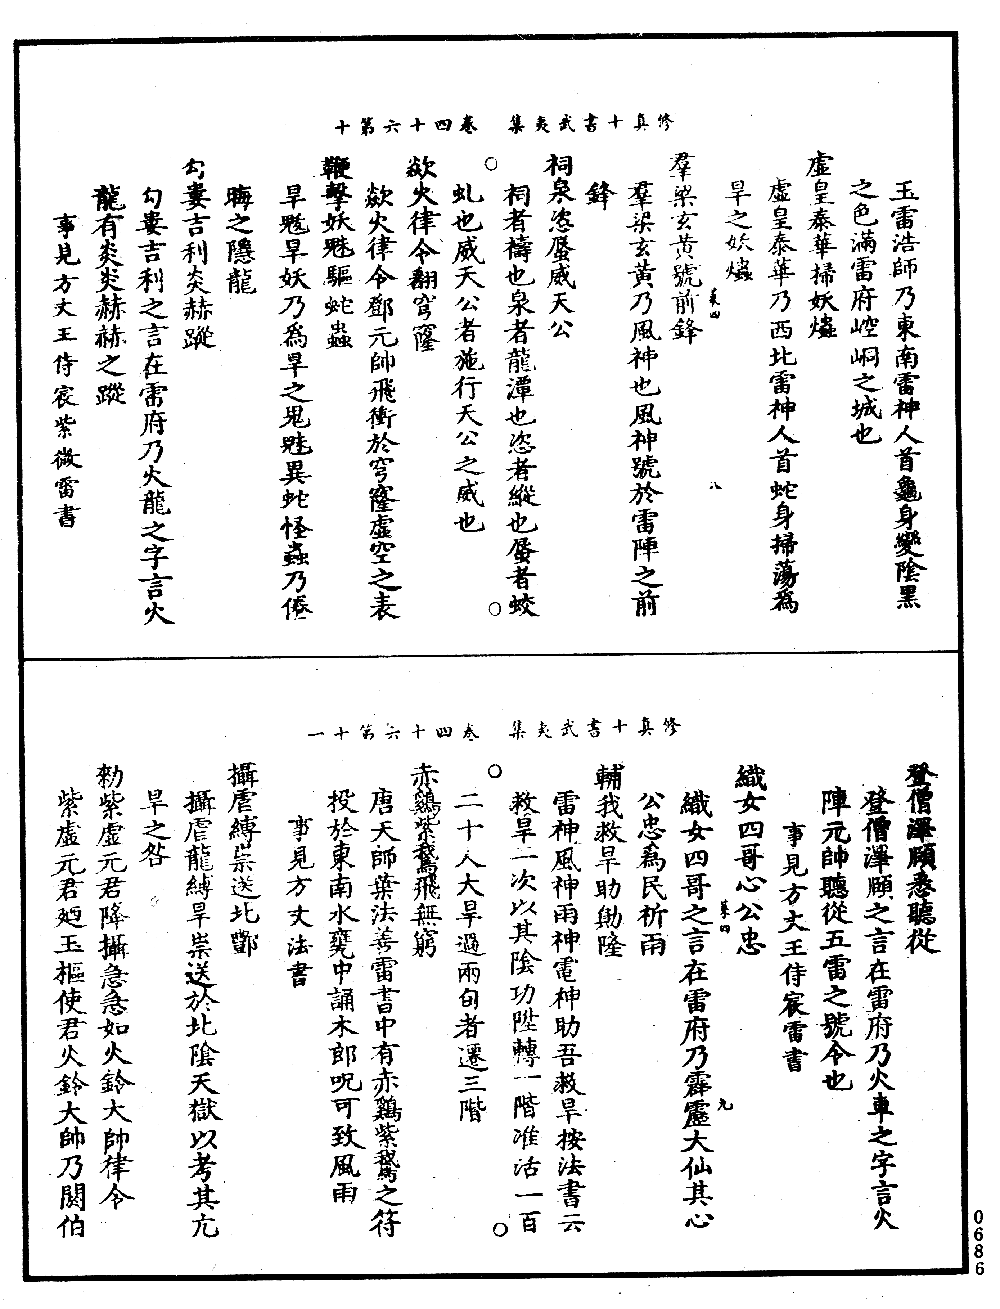 修真十書武夷集　卷四十六第十
玉雷浩師乃東南雷神人首龜身變陰黑
之色滿雷府崆峒之城也
虛皇泰華掃妖爞
虛皇泰華乃西北雷神人首蛇身掃蕩為
旱之妖爞
羣梁玄黃號前鋒
羣梁玄黃乃風神也風神號於雷陣之前
鋒
祠泉恣蜃威天公
祠者禱也泉者龍潭也恣者縱也蜃者蛟
虬也威天公者施行天公之威也
欻火律令翻穹窿
欻火律令鄧元帥飛衝於穹窿虛空之表
鞭擊妖魃驅蛇蟲
旱魃旱妖乃為旱之鬼魅異蛇怪蟲乃僥
晦之隱龍
勾婁吉利炎赫蹤
勾婁吉利之言在雷府乃火龍之字言火
龍有炎炎赫赫之蹤
事見方丈王侍宸紫微雷書
修真十書武夷集　卷四十六第十一
登僧澤願悉聽從
登僧澤願之言在雷府乃火車之字言火
陣元帥聽從五雷之號令也
事見方丈王侍宸雷書
織女四哥心公忠
織女四哥之言在雷府乃霹靂大仙其心
公忠為民祈雨
輔我救旱助勳隆
雷神風神雨神電神助吾救旱按法書云
救旱一次以其陰功陞轉一階准活一百
二十人大旱過兩旬者遷三階
赤鷄紫鵞飛無窮
唐天師葉法善雷書中有赤鷄紫鵞之符
投於東南水甕中誦木郎呪可致風雨
事見方丈法書
攝虐縛祟送北酆
攝虐龍縛旱祟送於北陰天獄以考其亢
旱之咎
勑紫虛元君降攝急急如火鈴大帥律令
紫虛元君廼玉樞使君火鈴大帥乃閼伯
八
九
0686